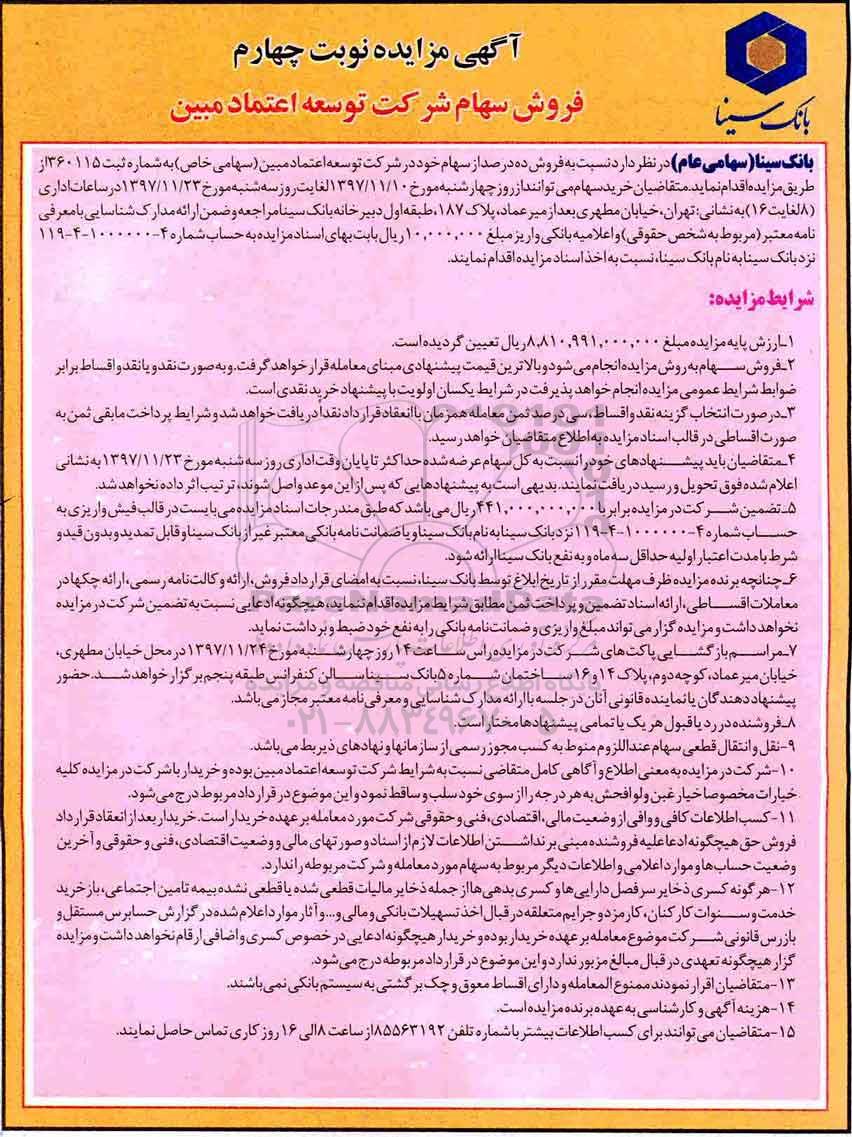 آگهی مزایده نوبت چهارم
فروش سهام شرکت توسعه اعتماد مبین
بانک سینا
بانک سینا (سهامی عام) در نظر دارد نسبت به فروش ده درصد از سهام خود در شرکت توسعه اعتماد مبین (سهامی خاص) به شماره ثبت ۳۶۰۱۱۵ از
طریق مزایده اقدام نماید. متقاضیان خرید سهام می توانند از روز چهارشنبه مورخ ۱۳۹۷/۱۱/۱۰ لغایت روز سه شنبه مورخ ۱۳۹۷/۱۱/۲۳ در ساعات اداری
(۸ لغایت ۱۶) به نشانی: تهران، خیابان مطهری بعد از میرعماد، پلاک ۱۸۷، طبقه اول دبیرخانه بانک سینا مراجعه و ضمن ارائه مدارک شناسایی با معرفی
نامه معتبر (مربوط به شخص حقوقی) و اعلامیه بانکی واریز مبلغ ۱۰,۰۰۰,۰۰۰ ریال بابت بهای اسناد مزایده به حساب شماره ۴-۱۰۰۰۰۰۰-۴-۱۱۹
نزد بانک سینا به نام بانک سینا، نسبت به اخذ اسناد مزایده اقدام نمایند.
شرایط مزایده:
۱ـ ارزش پایه مزایده مبلغ ۸,۸۱۰,۹۹۱,۰۰۰,۰۰۰ ریال تعیین گردیده است.
۲ـ فروش سهام به روش مزایده انجام می شود و بالاترین قیمت پیشنهادی مبنای معامله قرار خواهد گرفت. و به صورت نقد و یا نقد و اقساط برابر
ضوابط شرایط عمومی مزایده انجام خواهد پذیرفت در شرایط یکسان اولویت با پیشنهاد خرید نقدی است.
۳ـ در صورت انتخاب گزینه نقد و اقساط، سی درصد ثمن معامله همزمان با انعقاد قرارداد نقدا دریافت خواهد شد و شرایط پرداخت مابقی ثمن به
صورت اقساطی در قالب اسناد مزایده به اطلاع متقاضیان خواهد رسید.
۴ـ متقاضیان باید پیشنهادهای خود را نسبت به کل سهام عرضه شده حداکثر تا پایان وقت اداری روز سه شنبه مورخ ۱۳۹۷/۱۱/۲۳ به نشانی
اعلام شده فوق تحویل و رسید دریافت نمایند. بدیهی است به پیشنهادهایی که پس از این موعد واصل شوند، ترتیب اثر داده نخواهد شد.
۵ـ تضمین شرکت در مزایده برابر با ۴۴۱,۰۰۰,۰۰۰,۰۰۰ ریال می باشد که طبق مندرجات اسناد مزایده می بایست در قالب فیش واریزی به
حساب شماره ۴-۱۰۰۰۰۰۰-۴-۱۱۹ نزد بانک سینا به نام بانک سینا و یا ضمانت نامه بانکی معتبر غیر از بانک سینا و قابل تمدید و بدون قید و
شرط با مدت اعتبار اولیه حداقل سه ماه و به نفع بانک سینا ارائه شود.
۶ـ چنانچه برنده مزایده ظرف مهلت مقرر از تاریخ ابلاغ توسط بانک سینا، نسبت به امضای قرارداد فروش، ارائه وکالت نامه رسمی، ارائه چکها در
معاملات اقساطی، ارائه اسناد تضمین و پرداخت ثمن مطابق شرایط مزایده اقدام ننماید، هیچگونه ادعایی نسبت به تضمین شرکت در مزایده
نخواهد داشت و مزایده گزار می تواند مبلغ واریزی و ضمانت نامه بانکی را به نفع خود ضبط و برداشت نماید.
۷ـ مراسم بازگشایی پاکت های شرکت در مزایده راس ساعت ۱۴ روز چهارشنبه مورخ ۱۳۹۷/۱۱/۲۴ در محل خیابان مطهری،
خیابان میرعماد، کوچه دوم، پلاک ۱۴ و ۱۶ ساختمان شماره ۵ بانک سینا سالن کنفرانس طبقه پنجم برگزار خواهد شد. حضور
پیشنهاددهندگان یا نماینده قانونی آنان در جلسه با ارائه مدارک شناسایی و معرفی نامه معتبر مجاز می باشد.
۸ـ فروشنده در رد یا قبول هر یک یا تمامی پیشنهادها مختار است.
۹- نقل و انتقال قطعی سهام عنداللزوم منوط به کسب مجوز رسمی از سازمانها و نهادهای ذیربط می باشد.
۱۰- شرکت در مزایده به معنی اطلاع و آگاهی کامل متقاضی نسبت به شرایط شرکت توسعه اعتماد مبین بوده و خریدار با شرکت در مزایده کلیه
خیارات مخصوصا خیار غبن ولو افحش به هر درجه را از سوی خود سلب و ساقط نمود و این موضوع در قرارداد مربوط درج می شود.
۱۱- کسب اطلاعات کافی و وافی از وضعیت مالی، اقتصادی، فنی و حقوقی شرکت مورد معامله بر عهده خریدار است. خریدار بعد از انعقاد قرارداد
فروش حق هیچگونه ادعا علیه فروشنده مبنی بر نداشتن اطلاعات لازم از اسناد و صورتهای مالی و وضعیت اقتصادی، فنی و حقوقی و آخرین
وضعیت حسابها و موارد اعلامی و اطلاعات دیگر مربوط به سهام مورد معامله و شرکت مربوطه را ندارد.
۱۲- هرگونه کسری ذخایر سرفصل دارایی ها و کسری بدهی ها از جمله ذخایر مالیات قطعی شده یا قطعی نشده بیمه تامین اجتماعی، بازخرید
خدمت و سنوات کارکنان، کارمزد و جرایم متعلقه در قبال اخذ تسهیلات بانکی و مالی و... و آثار موارد اعلام شده در گزارش حسابرس مستقل و
بازرس قانونی شرکت موضوع معامله بر عهده خریدار بوده و خریدار هیچگونه ادعایی در خصوص کسری و اضافی ارقام نخواهد داشت و مزایده
گزار هیچگونه تعهدی در قبال مبالغ مزبور ندارد و این موضوع در قرارداد مربوطه درج می شود.
۱۳- متقاضیان اقرار نمودند ممنوع المعامله و دارای اقساط معوق و چک برگشتی به سیستم بانکی نمی باشند.
۱۴- هزینه آگهی و کارشناسی به عهده برنده مزایده است.
۱۵- متقاضیان می توانند برای کسب اطلاعات بیشتر با شماره تلفن ۸۵۵۶۳۱۹۲ از ساعت ۸ الی ۱۶ روز کاری تماس حاصل نمایند.
ParsNamadData
پایگاه اطلاع رسانی مناقصه و مزایده
۰۲۱-۸۸۳۴۹۶۷۰-۵